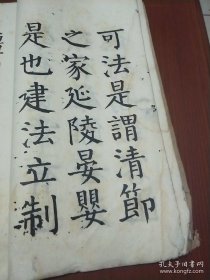 可法是謂清節
之家延陵晏嬰
是也建法立制
孔夫子旧书网